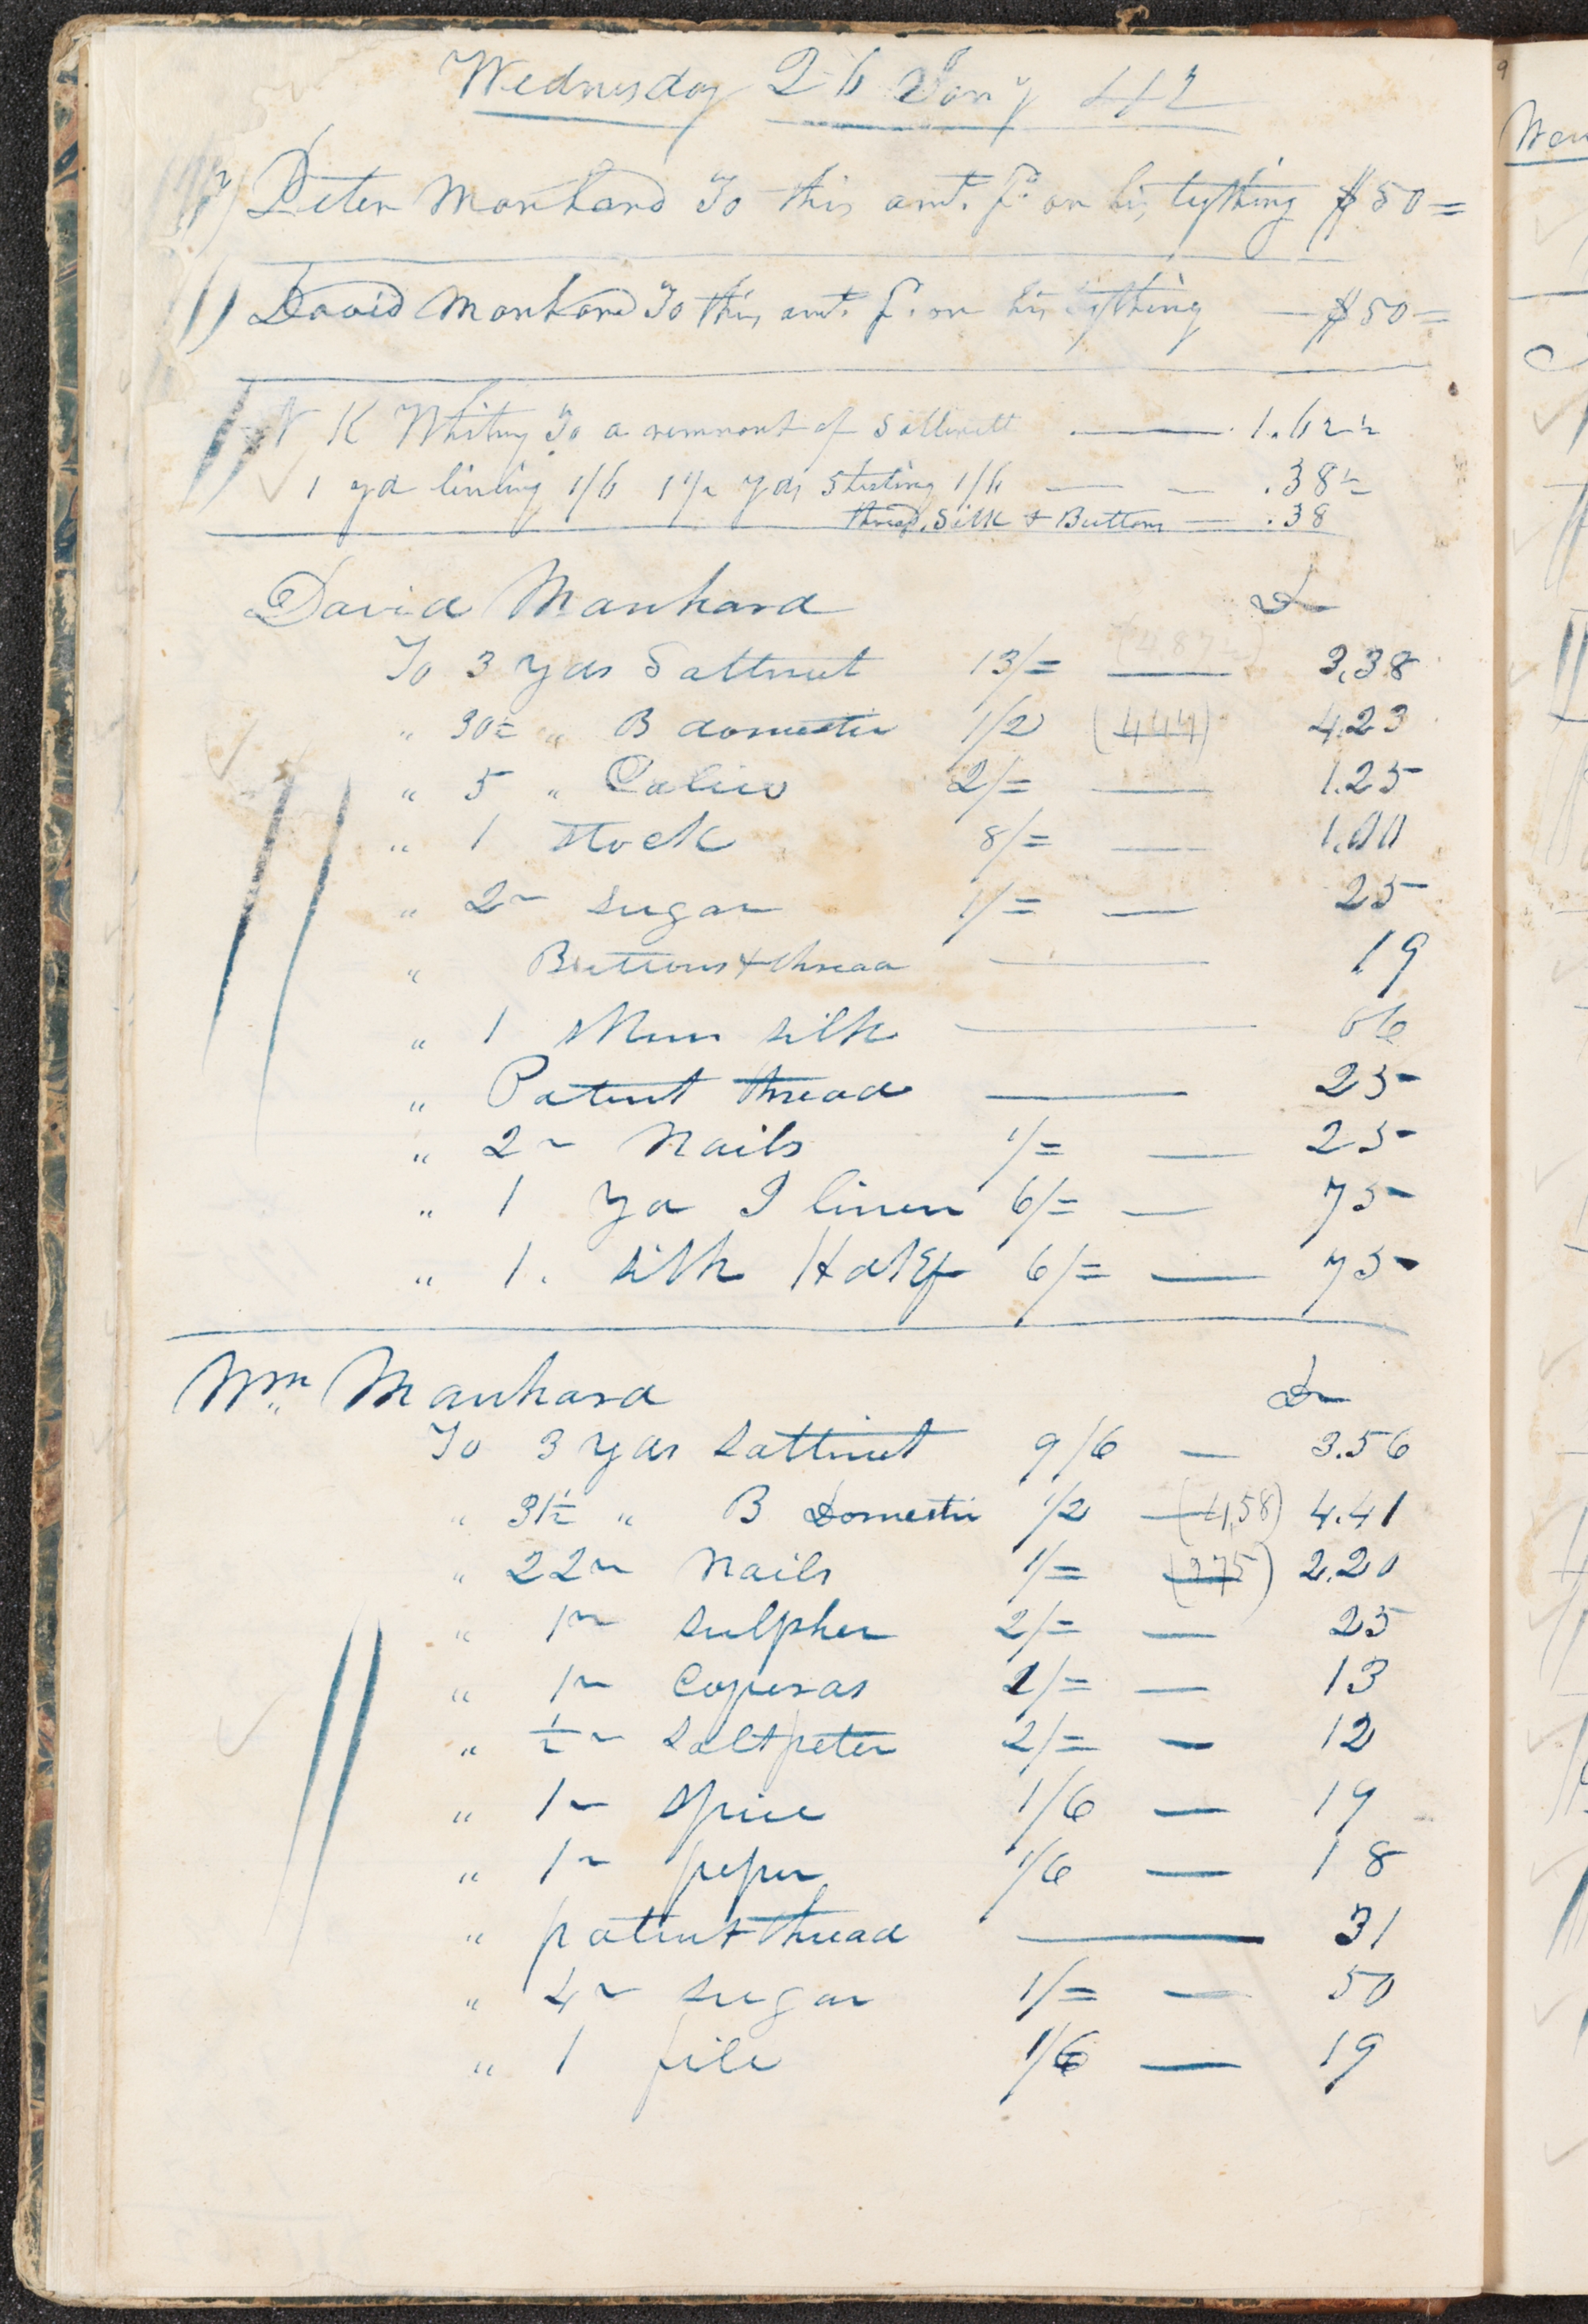 Wednesday 26 Jany 442
Peter Manhard To this amt. P. on his tything $50=
David Manhard To this amt. P. on his tything — $50=
N K Whitney To a remnant of Sattinett — 1.62½
1 yd lining 1/6 1½ yds Sheeting 1/6 — — .38½
thread, Silk & Buttons — .38
David Manhard Dr
To 3 yds Sattinet 13/= (4.87½) 3.38
" 30½ " B domestic 1/2 (444) 4.23
" 5 " Calico 2/= — 1.25
" 1 stock 8/= — 1.00
" 2~ sugar 1/= — 25
" Buttons & thread — .19
" 1 Skein silk — 06
" Patent thread — 25
" 2~ Nails 1/= — 25
" 1 yd I linen 6/= — 75
" 1. silk Hdkf 6/= — 75
Wm Manhard Dr
To 3 yds sattinet 9/6 — 3.56
" 31½ " B Domestic 1/2 — (4,58) 4.41
" 22~ Nails 1/= (275) 2.20
" 1~ sulpher 2/= — 25
" 1~ Coperas 1/= — 13
" ½~ Saltpeter 2/= — 12
" 1~ spice 1/6 — 19
" 1~ peper 1/6 — 18
" patent thread — 31
" 4~ sugar 1/= — 50
" 1 file 1/6 — 19